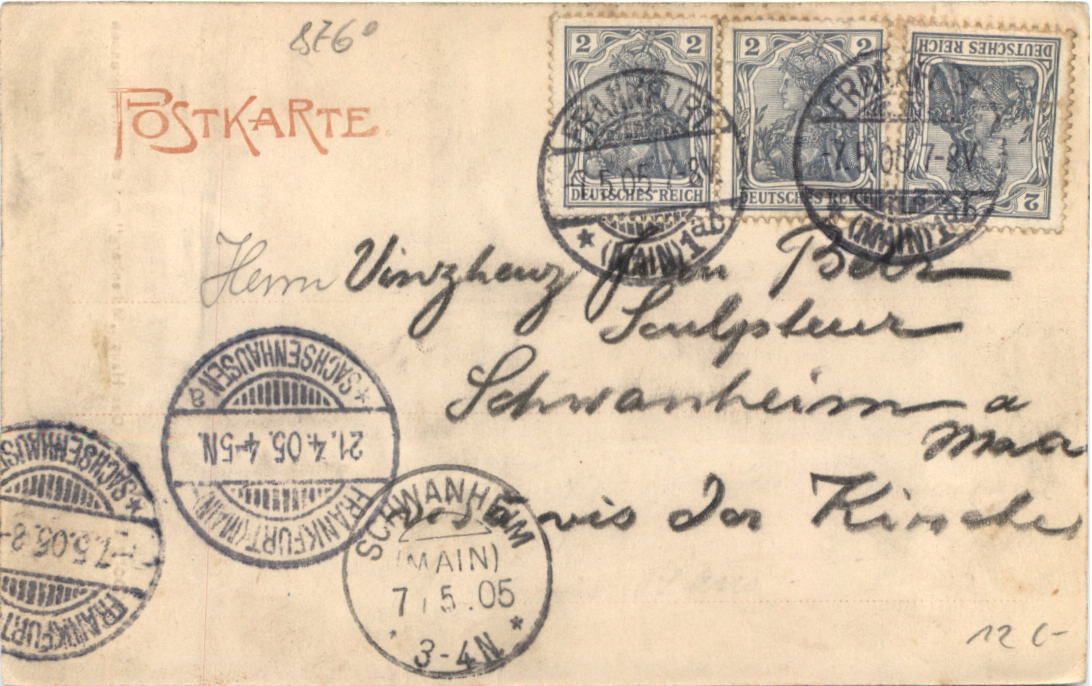 876°
POSTKARTE
2 2 DEUTSCHES REICH
2 2 DEUTSCHES REICH
2 DEUTSCHES REICH
FRANKFURT
5.05.7-8V.
* (MAIN) 1
FRANKFURT
-7.5.05.7-8V.
* (MAIN) 1
Herrn Vinzhenz
Sculpteur
Schwanheim a
Maa
vis a vis der Kirche
* SACHSENHAUSEN a
21.4.05. 4-5N.
FRANKFURT (MAIN)
* SACHSENHAUS
-7.5.05.8-
FRANKFURT
SCHWANHEIM
(MAIN)
7.5.05
* 3-4N *
12 €-